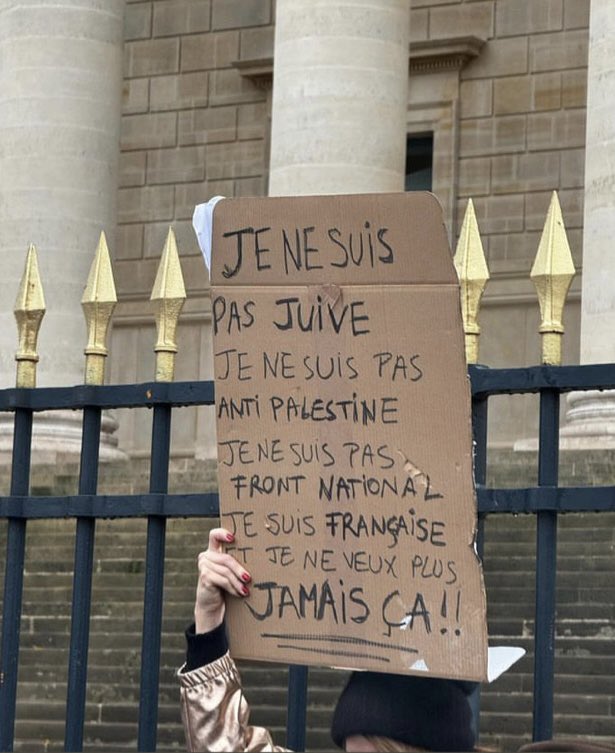 JE NE SUIS
PAS JUIVE
JE NE SUIS PAS
ANTI PALESTINE
JE NE SUIS PAS
FRONT NATIONAL
JE SUIS FRANÇAISE
ET JE NE VEUX PLUS
JAMAIS ÇA!!